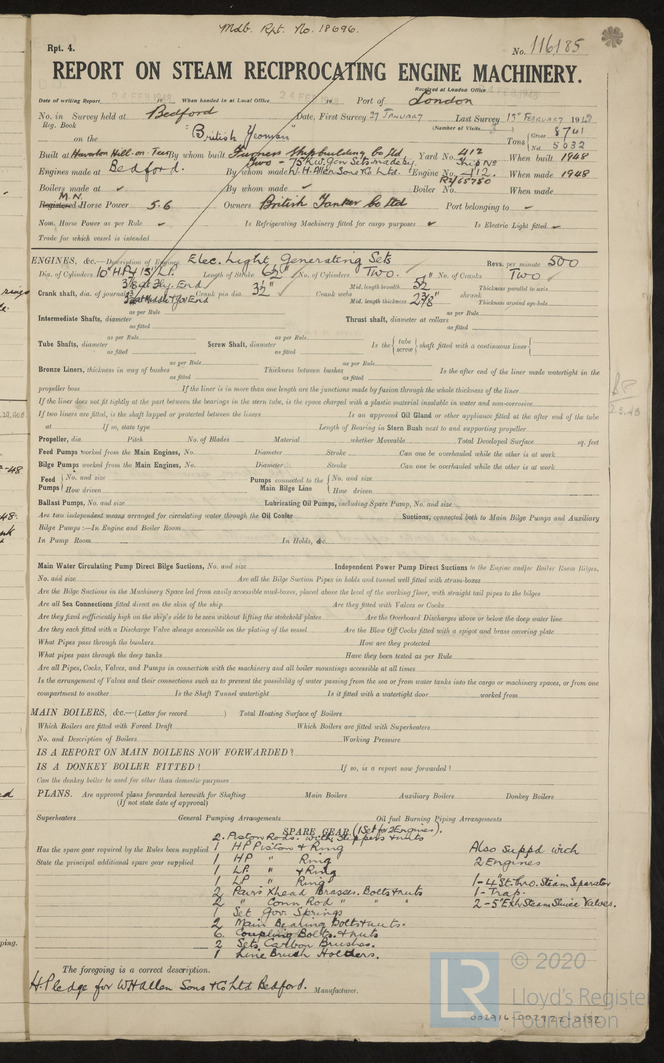 Mdb. Rpt. No. 18696.
Rpt. 4.
No. 116185
REPORT ON STEAM RECIPROCATING ENGINE MACHINERY.
Received at London Office
Date of writing Report 19 When handed in at Local Office 19 Port of London
No. in Survey held at Bedford Date, First Survey 27 January Last Survey 13th February 1948
Reg. Book (Number of Visits )
on the "British Yeoman" Tons Gross 8741 Net 5032
Built at Haverton Hill-on-Tees By whom built Furness Shipbuilding Co Ltd Yard No. 412 When built 1948
Engines made at Bedford. By whom made W.H. Allen Sons & Co Ltd. Engine No. When made 1948
Two - 75 K.W. Gen Sets made by
Boilers made at ✓ By whom made ✓ Boiler No. When made
M.N.
Registered Horse Power 56 Owners British Tanker Co Ltd Port belonging to ✓
Nom. Horse Power as per Rule ✓ Is Refrigerating Machinery fitted for cargo purposes ✓ Is Electric Light fitted ✓
Trade for which vessel is intended
ENGINES, &c.—Description of Engines Elec. Light Generating Sets Revs. per minute 500
Dia. of Cylinders 10" H.P. & 15" L.P. Length of Stroke 6½" No. of Cylinders Two. No. of Cranks Two
Crank shaft, dia. of journals Crank pin dia. 3½" Crank webs Mid. length breadth Mid. length thickness shrunk Thickness parallel to axis Thickness around eye-hole
Intermediate Shafts, diameter as per Rule as fitted Thrust shaft, diameter at collars as per Rule as fitted
Tube Shafts, diameter as per Rule as fitted Screw Shaft, diameter as per Rule as fitted Is the { tube screw } shaft fitted with a continuous liner {
Bronze Liners, thickness in way of bushes as per Rule as fitted Thickness between bushes as per Rule as fitted Is the after end of the liner made watertight in the
propeller boss If the liner is in more than one length are the junctions made by fusion through the whole thickness of the liner
If the liner does not fit tightly at the part between the bearings in the stern tube, is the space charged with a plastic material insoluble in water and non-corrosive
If two liners are fitted, is the shaft lapped or protected between the liners Is an approved Oil Gland or other appliance fitted at the after end of the tube
at If so, state type Length of Bearing in Stern Bush next to and supporting propeller
Propeller, dia. Pitch No. of Blades Material whether Moveable Total Developed Surface sq. feet
Feed Pumps worked from the Main Engines, No. Diameter Stroke Can one be overhauled while the other is at work
Bilge Pumps worked from the Main Engines, No. Diameter Stroke Can one be overhauled while the other is at work
Feed Pumps { No. and size How driven Pumps connected to the Main Bilge Line { No. and size How driven
Ballast Pumps, No. and size Lubricating Oil Pumps, including Spare Pump, No. and size
Are two independent means arranged for circulating water through the Oil Cooler Suctions, connected both to Main Bilge Pumps and Auxiliary
Bilge Pumps :—In Engine and Boiler Room
In Pump Room In Holds, &c.
Main Water Circulating Pump Direct Bilge Suctions, No. and size Independent Power Pump Direct Suctions to the Engine and/or Boiler Room Bilges,
No. and size Are all the Bilge Suction Pipes in holds and tunnel well fitted with strum-boxes
Are the Bilge Suctions in the Machinery Space led from easily accessible mud-boxes, placed above the level of the working floor, with straight tail pipes to the bilges
Are all Sea Connections fitted direct on the skin of the ship Are they fitted with Valves or Cocks
Are they fixed sufficiently high on the ship's side to be seen without lifting the stokehold plates Are the Overboard Discharges above or below the deep water line
Are they each fitted with a Discharge Valve always accessible on the plating of the vessel Are the Blow Off Cocks fitted with a spigot and brass covering plate
What Pipes pass through the bunkers How are they protected
What pipes pass through the deep tanks Have they been tested as per Rule
Are all Pipes, Cocks, Valves, and Pumps in connection with the machinery and all boiler mountings accessible at all times
Is the arrangement of Valves and their connections such as to prevent the possibility of water passing from the sea or from water tanks into the cargo or machinery spaces, or from one
compartment to another Is the Shaft Tunnel watertight Is it fitted with a watertight door worked from
MAIN BOILERS, &c.—(Letter for record ) Total Heating Surface of Boilers
Which Boilers are fitted with Forced Draft Which Boilers are fitted with Superheaters
No. and Description of Boilers Working Pressure
IS A REPORT ON MAIN BOILERS NOW FORWARDED ?
IS A DONKEY BOILER FITTED ? If so, is a report now forwarded ?
Can the donkey boiler be used for other than domestic purposes
PLANS. Are approved plans forwarded herewith for Shafting Main Boilers Auxiliary Boilers Donkey Boilers
(If not state date of approval)
Superheaters General Pumping Arrangements Oil fuel Burning Piping Arrangements
SPARE GEAR. (1 Set for 2 Engines).
2. Piston Rods. with Slippers & nuts
Has the spare gear required by the Rules been supplied 1 HP Piston & Ring Also Suppd with
State the principal additional spare gear supplied 1 HP " Ring 2 Engines
1 L.P. " & Ring
1 LP " Ring 1 - 4" St. thro. Steam Separator
2 Pairs Xhead Brasses. Bolts & nuts 1 - Trap.
2 " Conn Rod " " " 2 - 5" Exh Steam Sluice Valves.
1 Set Gov. Springs
2 Main Bearing Bolts & nuts.
6 Coupling Bolts. & nuts
2 Sets Carbon Brushes.
1 Line Brush Holders.
The foregoing is a correct description.
H. Pledge for W H Allen Sons & Co Ltd Bedford. Manufacturer.
© 2020
LR
Lloyd's Register
Foundation
002916-002922-0152